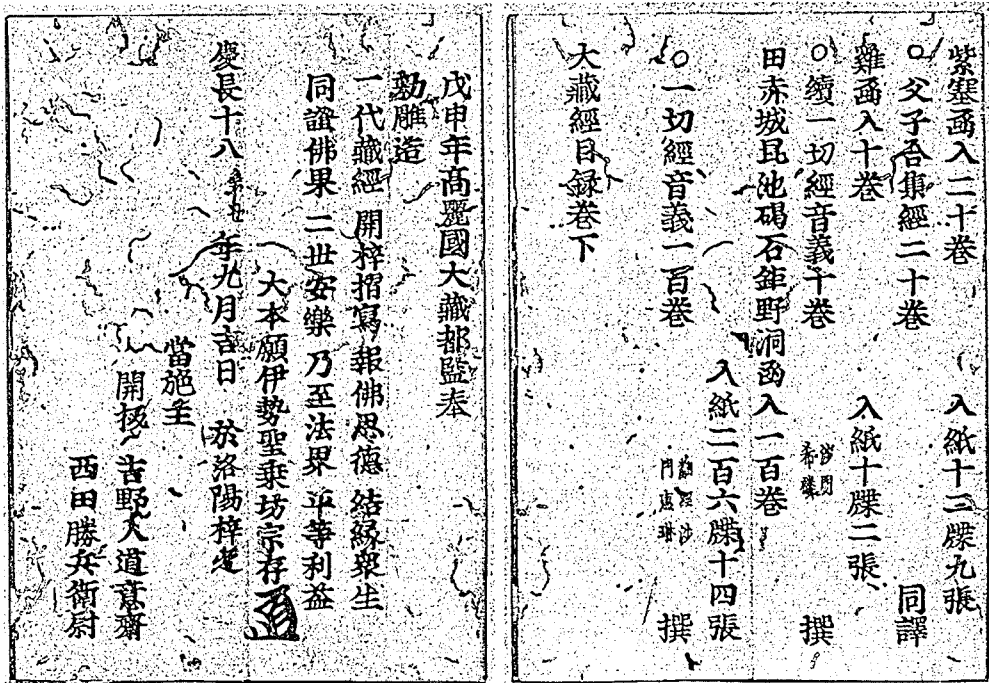 紫塞函入二十巻 入紙十三牒九張
○父子合集經二十巻 同譯
雞函入十巻 入紙十牒二張
○續一切經音義十巻 沙門希麟 撰
田赤城昆池碣石鉅野洞函入一百巻
入紙二百六牒十四張
○一切經音義一百巻 翻經沙門惠琳 撰
大藏經目録巻下
戊申年髙麗國大藏都監奉
勅雕造
一代藏經 開梓摺寫 報佛恩德 結緣衆生
同證佛果 二世安樂 乃至法界 平等利益
大本願伊勢聖乗坊宗存
慶長十八癸丑年九月吉日 於洛陽梓之
當施主
開板 吉野入道意齋
西田勝兵衛尉